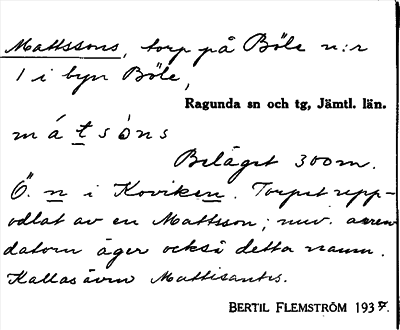 Mattssons, torp på Böle n:r
1 i byn Böle,
Ragunda sn och tg, Jämtl. län.
m á t s ò n s
Beläget 300 m.
Ö. n i Koviken. Torpet upp-
odlat av en Mattsson; nuv. arren
datorn äger också detta namn.
Kallas även Mattisants.
BERTIL FLEMSTRÖM 1937.